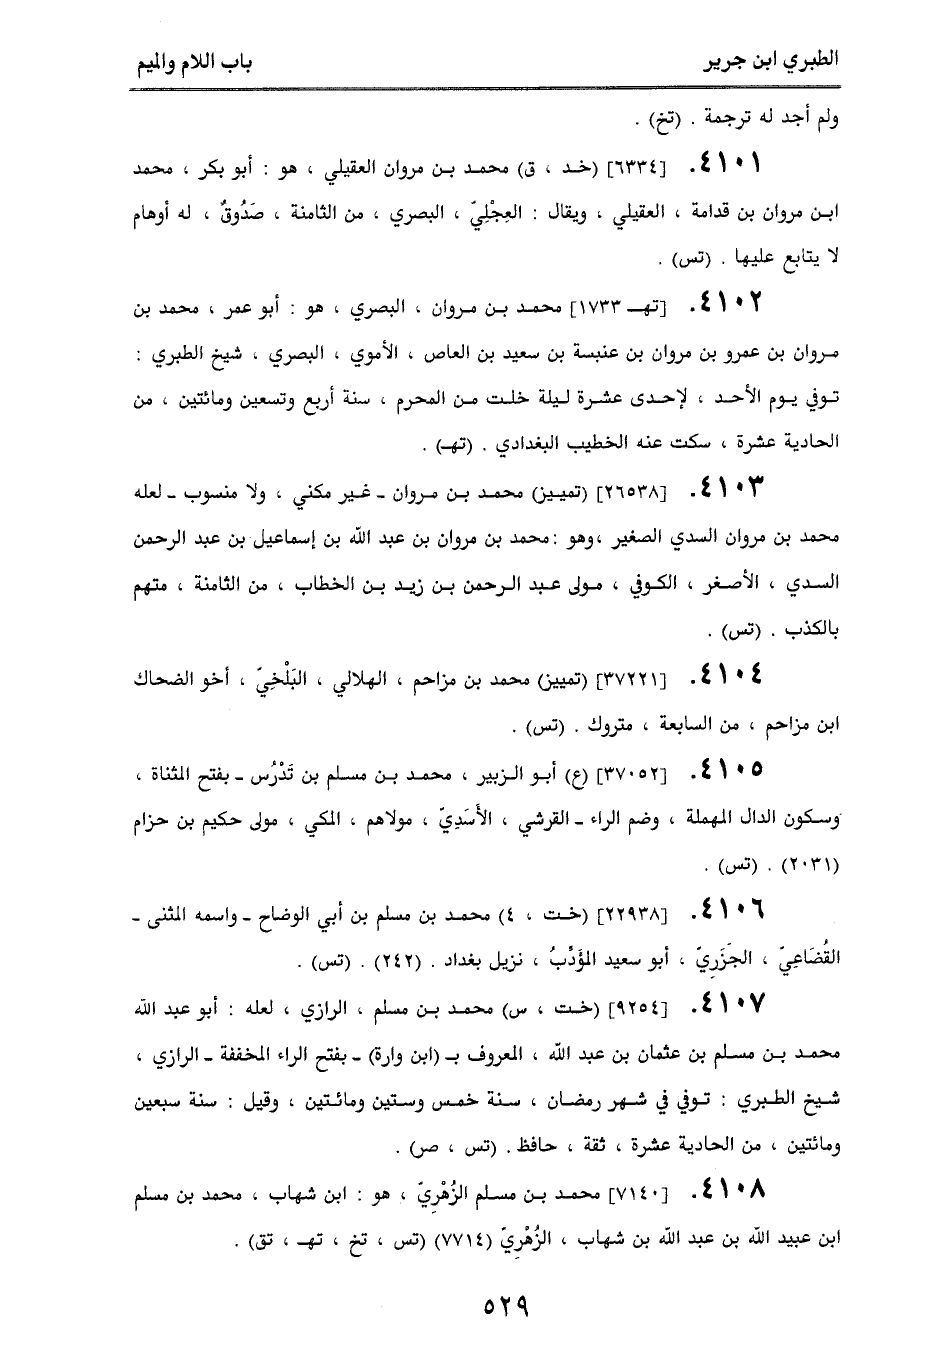 الطبري ابن جرير
باب اللام والميم
ولم أجد له ترجمة . (تخ) .
٤١٠١. [٦٣٣٤] (خد ، ق) محمد بن مروان العقيلي ، هو : أبو بكر ، محمد
ابن مروان بن قدامة ، العقيلي ، ويقال : العِجْلِيّ ، البصري ، من الثامنة ، صَدُوقٌ ، له أوهام
لا يتابع عليها . (تس) .
٤١٠٢. [تهـ ١٧٣٣] محمد بن مروان ، البصري ، هو : أبو عمر ، محمد بن
مروان بن عمرو بن مروان بن عنبسة بن سعيد بن العاص ، الأموي ، البصري ، شيخ الطبري :
توفي يوم الأحد ، لإحدى عشرة ليلة خلت من المحرم ، سنة أربع وتسعين ومائتين ، من
الحادية عشرة ، سكت عنه الخطيب البغدادي . (تهـ) .
٤١٠٣. [٢٦٥٣٨] (تمييز) محمد بن مروان ـ غير مكني ، ولا منسوب ـ لعله
محمد بن مروان السدي الصغير ،وهو :محمد بن مروان بن عبد الله بن إسماعيل بن عبد الرحمن
السدي ، الأصغر ، الكوفي ، مولى عبد الرحمن بن زيد بن الخطاب ، من الثامنة ، متهم
بالكذب . (تس) .
٤١٠٤. [٣٧٢٢١] (تمييز) محمد بن مزاحم ، الهلالي ، البَلْخِيّ ، أخو الضحاك
ابن مزاحم ، من السابعة ، متروك . (تس) .
٤١٠٥. [٣٧٠٥٢] (ع) أبو الزبير ، محمد بن مسلم بن تَدْرُس ـ بفتح المثناة ،
وسكون الدال المهملة ، وضم الراء ـ القرشي ، الأَسَدِيّ ، مولاهم ، المكي ، مولى حكيم بن حزام
(٢٠٣١) . (تس) .
٤١٠٦. [٢٢٩٣٨] (خت ، ٤) محمد بن مسلم بن أبي الوضاح ـ واسمه المثنى ـ
القُضَاعِيّ ، الجَزَرِيّ ، أبو سعيد المؤَدِّبُ ، نزيل بغداد . (٢٤٢) . (تس) .
٤١٠٧. [٩٢٥٤] (خت ، س) محمد بن مسلم ، الرازي ، لعله : أبو عبد الله
محمد بن مسلم بن عثمان بن عبد الله ، المعروف بـ (ابن وارة) ـ بفتح الراء المخففة ـ الرازي ،
شيخ الطبري : توفي في شهر رمضان ، سنة خمس وستين ومائتين ، وقيل : سنة سبعين
ومائتين ، من الحادية عشرة ، ثقة ، حافظ . (تس ، صر) .
٤١٠٨. [٧١٤٠] محمد بن مسلم الزُهْرِيّ ، هو : ابن شهاب ، محمد بن مسلم
ابن عبيد الله بن عبد الله بن شهاب ، الزُهْرِيّ (٧٧١٤) (تس ، تخ ، تهـ ، تق) .
٥٢٩